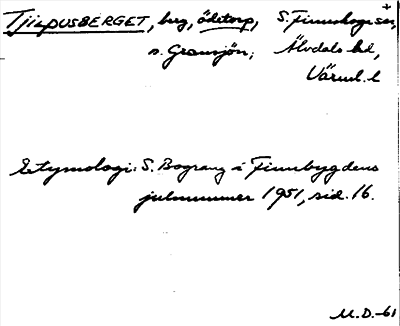 TJILPUSBERGET, berg, ödetorp, S. Finnskoga sn,
n. Gransjön; Älvdals hd,
Värml. l
Etymologi: S. Bograng i Finnbygdens
julnummer 1951, sid. 16.
M.D.-61